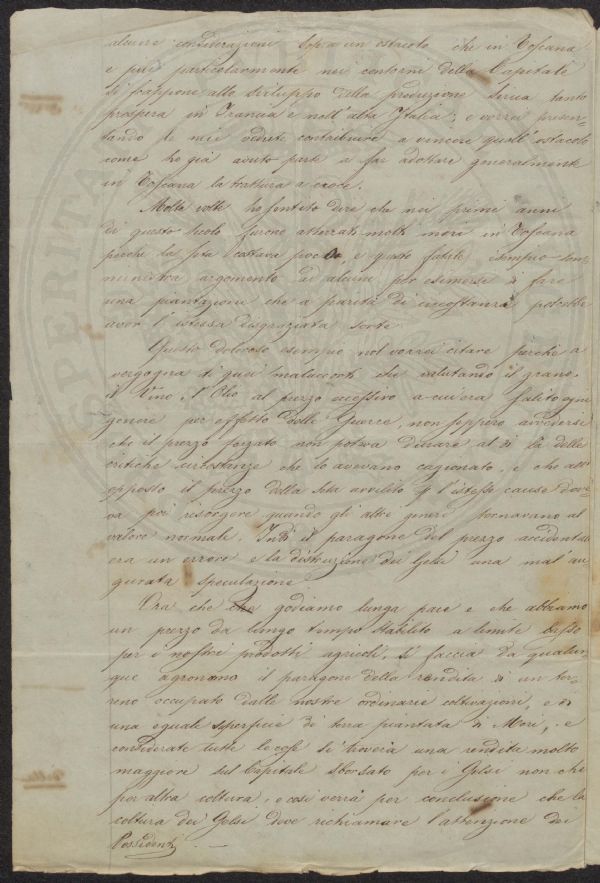 alcune considerazioni sopra un ostacolo che in Toscana
e più particolarmente nei contorni della Capitale
si frappone allo sviluppo della produzione serica tanto
prospera in Francia e nell'alta Italia; e vorrei presen-
tando le mie vedute contribuire a vincere quell'ostacolo
come ho già avuto parte a far adottare generalmente
in Toscana la trattura a croce.
Molte volte ho sentito dire che nei primi anni
di questo secolo furono atterrati molti mori in Toscana
perchè la seta costava poco e questo fatale esempio som-
ministra argomento ad alcuni per esimersi di fare
una piantazione che a parità di circostanze potrebbe
aver l'istessa disgraziata sorte.
Questo doloroso esempio nol vorrei citare perchè a
vergogna di quei malaccorti che valutando il grano,
il Vino, l'Olio al prezzo eccessivo a cui era salito ogni
genere per effetto delle Guerre, non seppero avvedersi
che il prezzo forzato non poteva durare al di là delle
critiche circostanze che lo avevano cagionato, e che all'
opposto il prezzo della seta avvilito p l'istesse cause dove-
va poi risorgere quando gli altri generi tornavano al
valore normale. il paragone del prezzo accidentale
era un errore e la distruzione dei Gelsi una mal'au
gurata speculazione
Ora che che godiamo lunga pace e che abbiamo
un prezzo da lungo tempo stabilito a limite basso
per i nostri prodotti agricoli, si faccia da qualun
que agronomo il paragone della rendita di un ter-
reno occupato dalle nostre ordinarie coltivazioni, e di
una eguale superficie di terra piantata di Mori, e
considerate tutte le cose si troverà una rendita molto
maggiore sul Capitale sborsato per i Gelsi non che
per altra coltura, e così verrà per conclusione che la
coltura dei Gelsi deve richiamare l'attenzione dei
Possidenti.